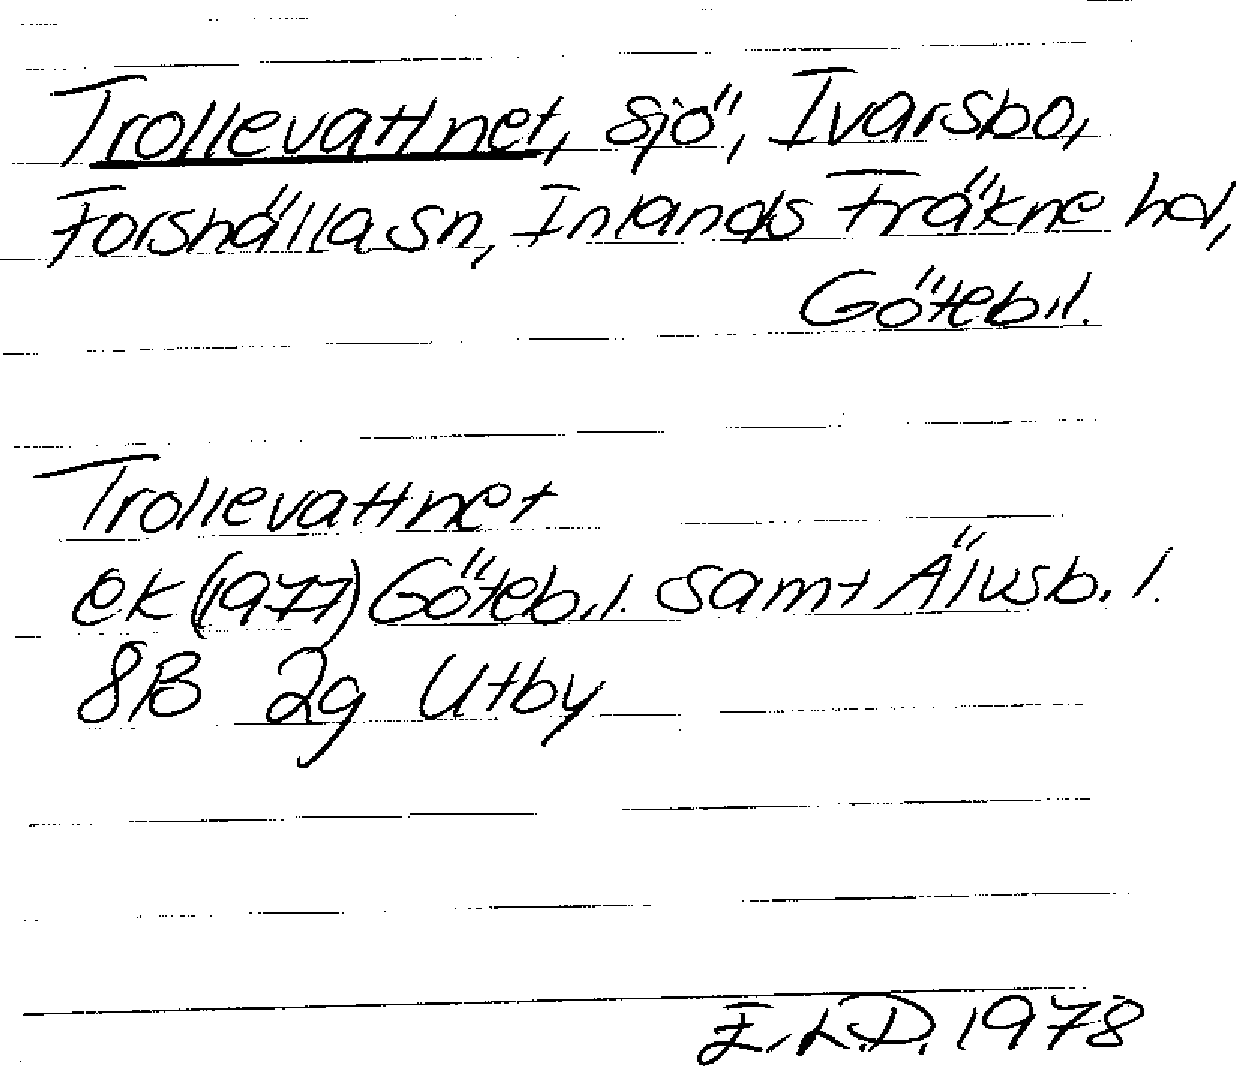 Trollevattnet, sjö, Ivarsbo,
Forshälla sn, Inlands Fräkne hd,
Göteb.l.
Trollevattnet
ek (1977) Göteb.l. samt Älvsb.l.
8B 2g Utby
E.L.D. 1978